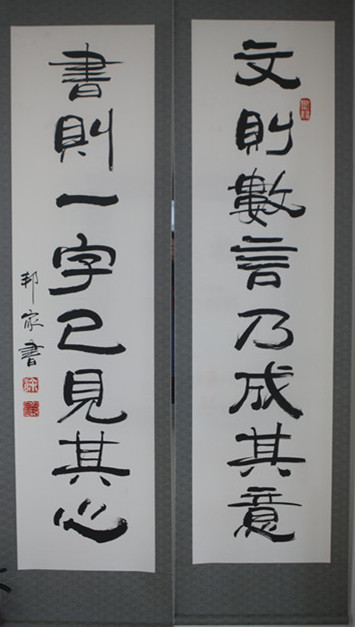 文則數言乃成其意
書則一字已見其心
邦家書